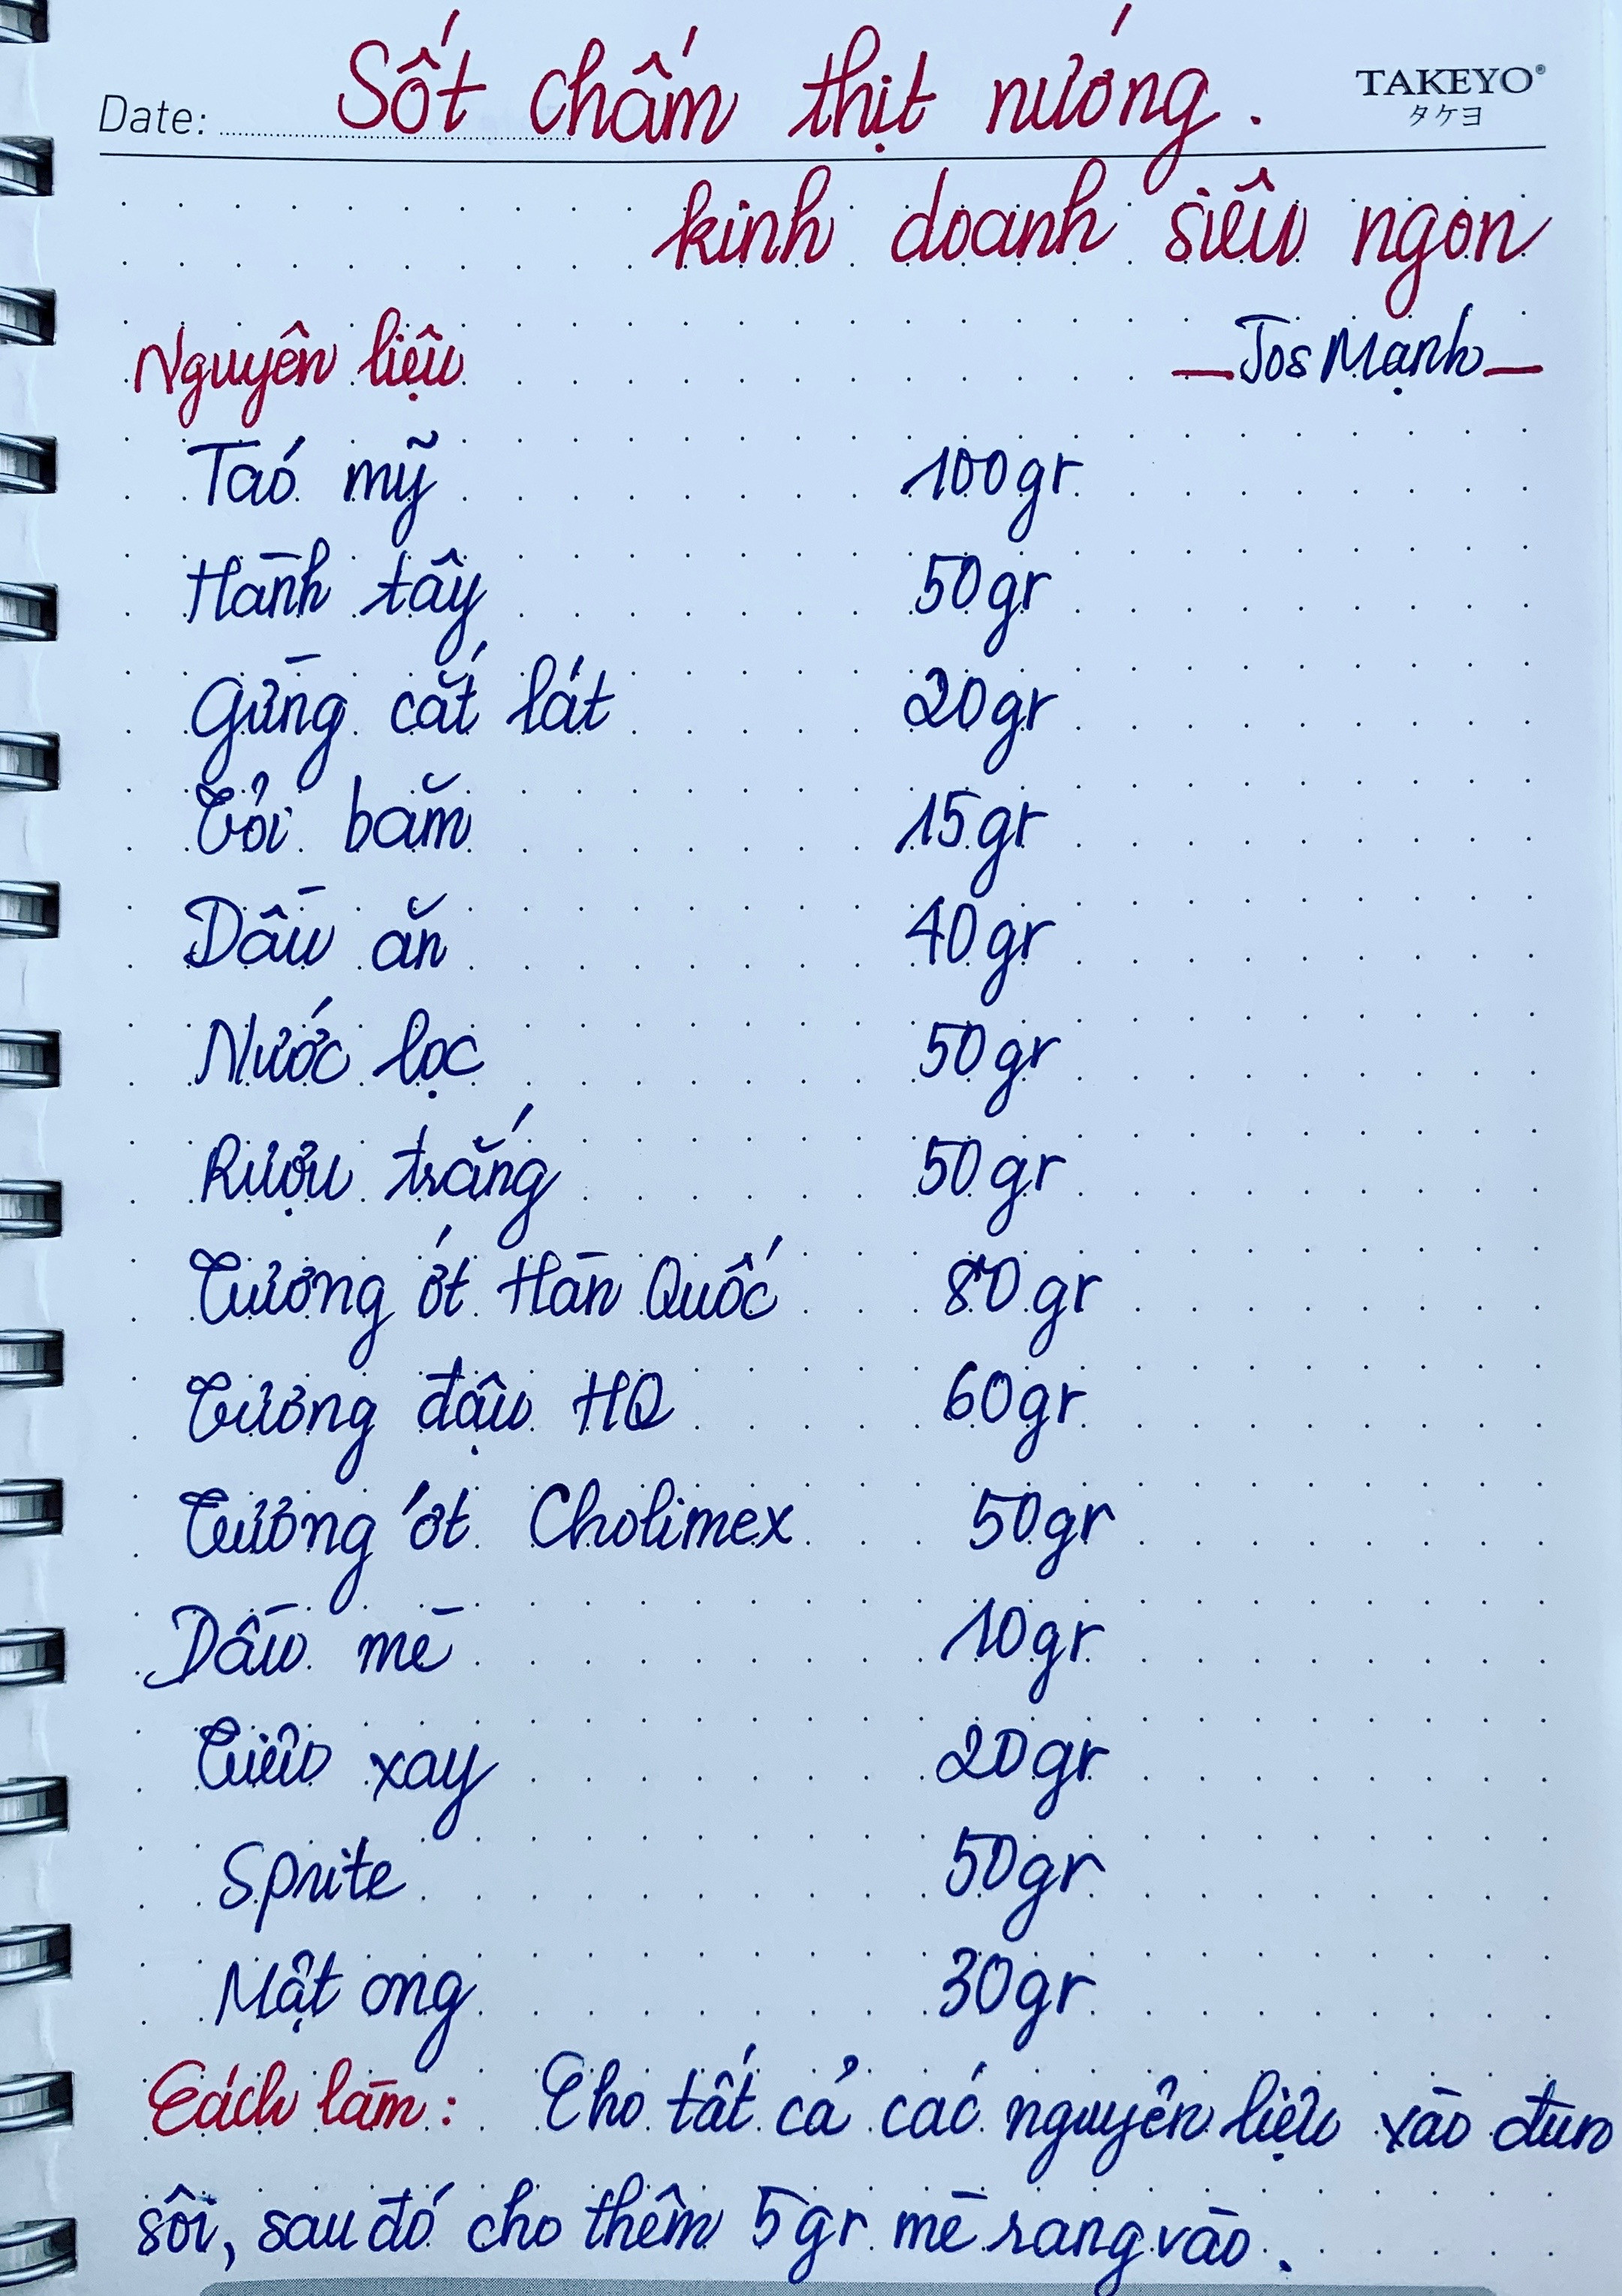 Sốt chấm thịt nướng.
Date: TAKEYO®
タケヨ
kinh doanh siêu ngon
Nguyên liệu — Jos Mạnh —
Táo mỹ 100gr
Hành tây 50gr
Gừng cắt lát 20gr
Tỏi băm 15gr
Dầu ăn 40gr
Nước lọc 50gr
Rượu trắng 50gr
Tương ớt Hàn Quốc 80gr
Tương đậu HQ 60gr
Tương ớt Cholimex 50gr
Dầu mè 10gr
Tiêu xay 20gr
Sprite 50gr
Mật ong 30gr
Cách làm: Cho tất cả các nguyên liệu xào đun
sôi, sau đó cho thêm 5gr mè rang vào.